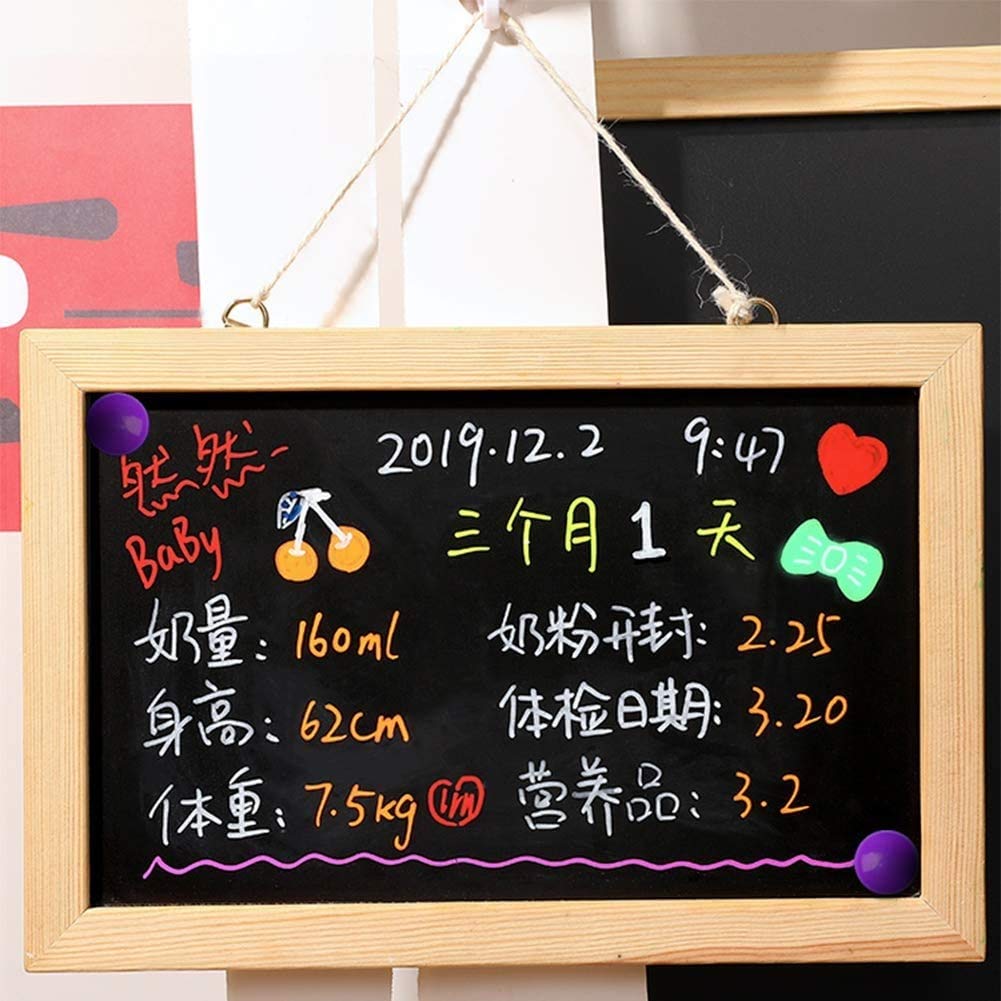 然然
2019.12.2 9:47
Baby
三个月1天
奶量: 160ml 奶粉开封: 2.25
身高: 62cm 体检日期: 3.20
体重: 7.5kg 营养品: 3.2